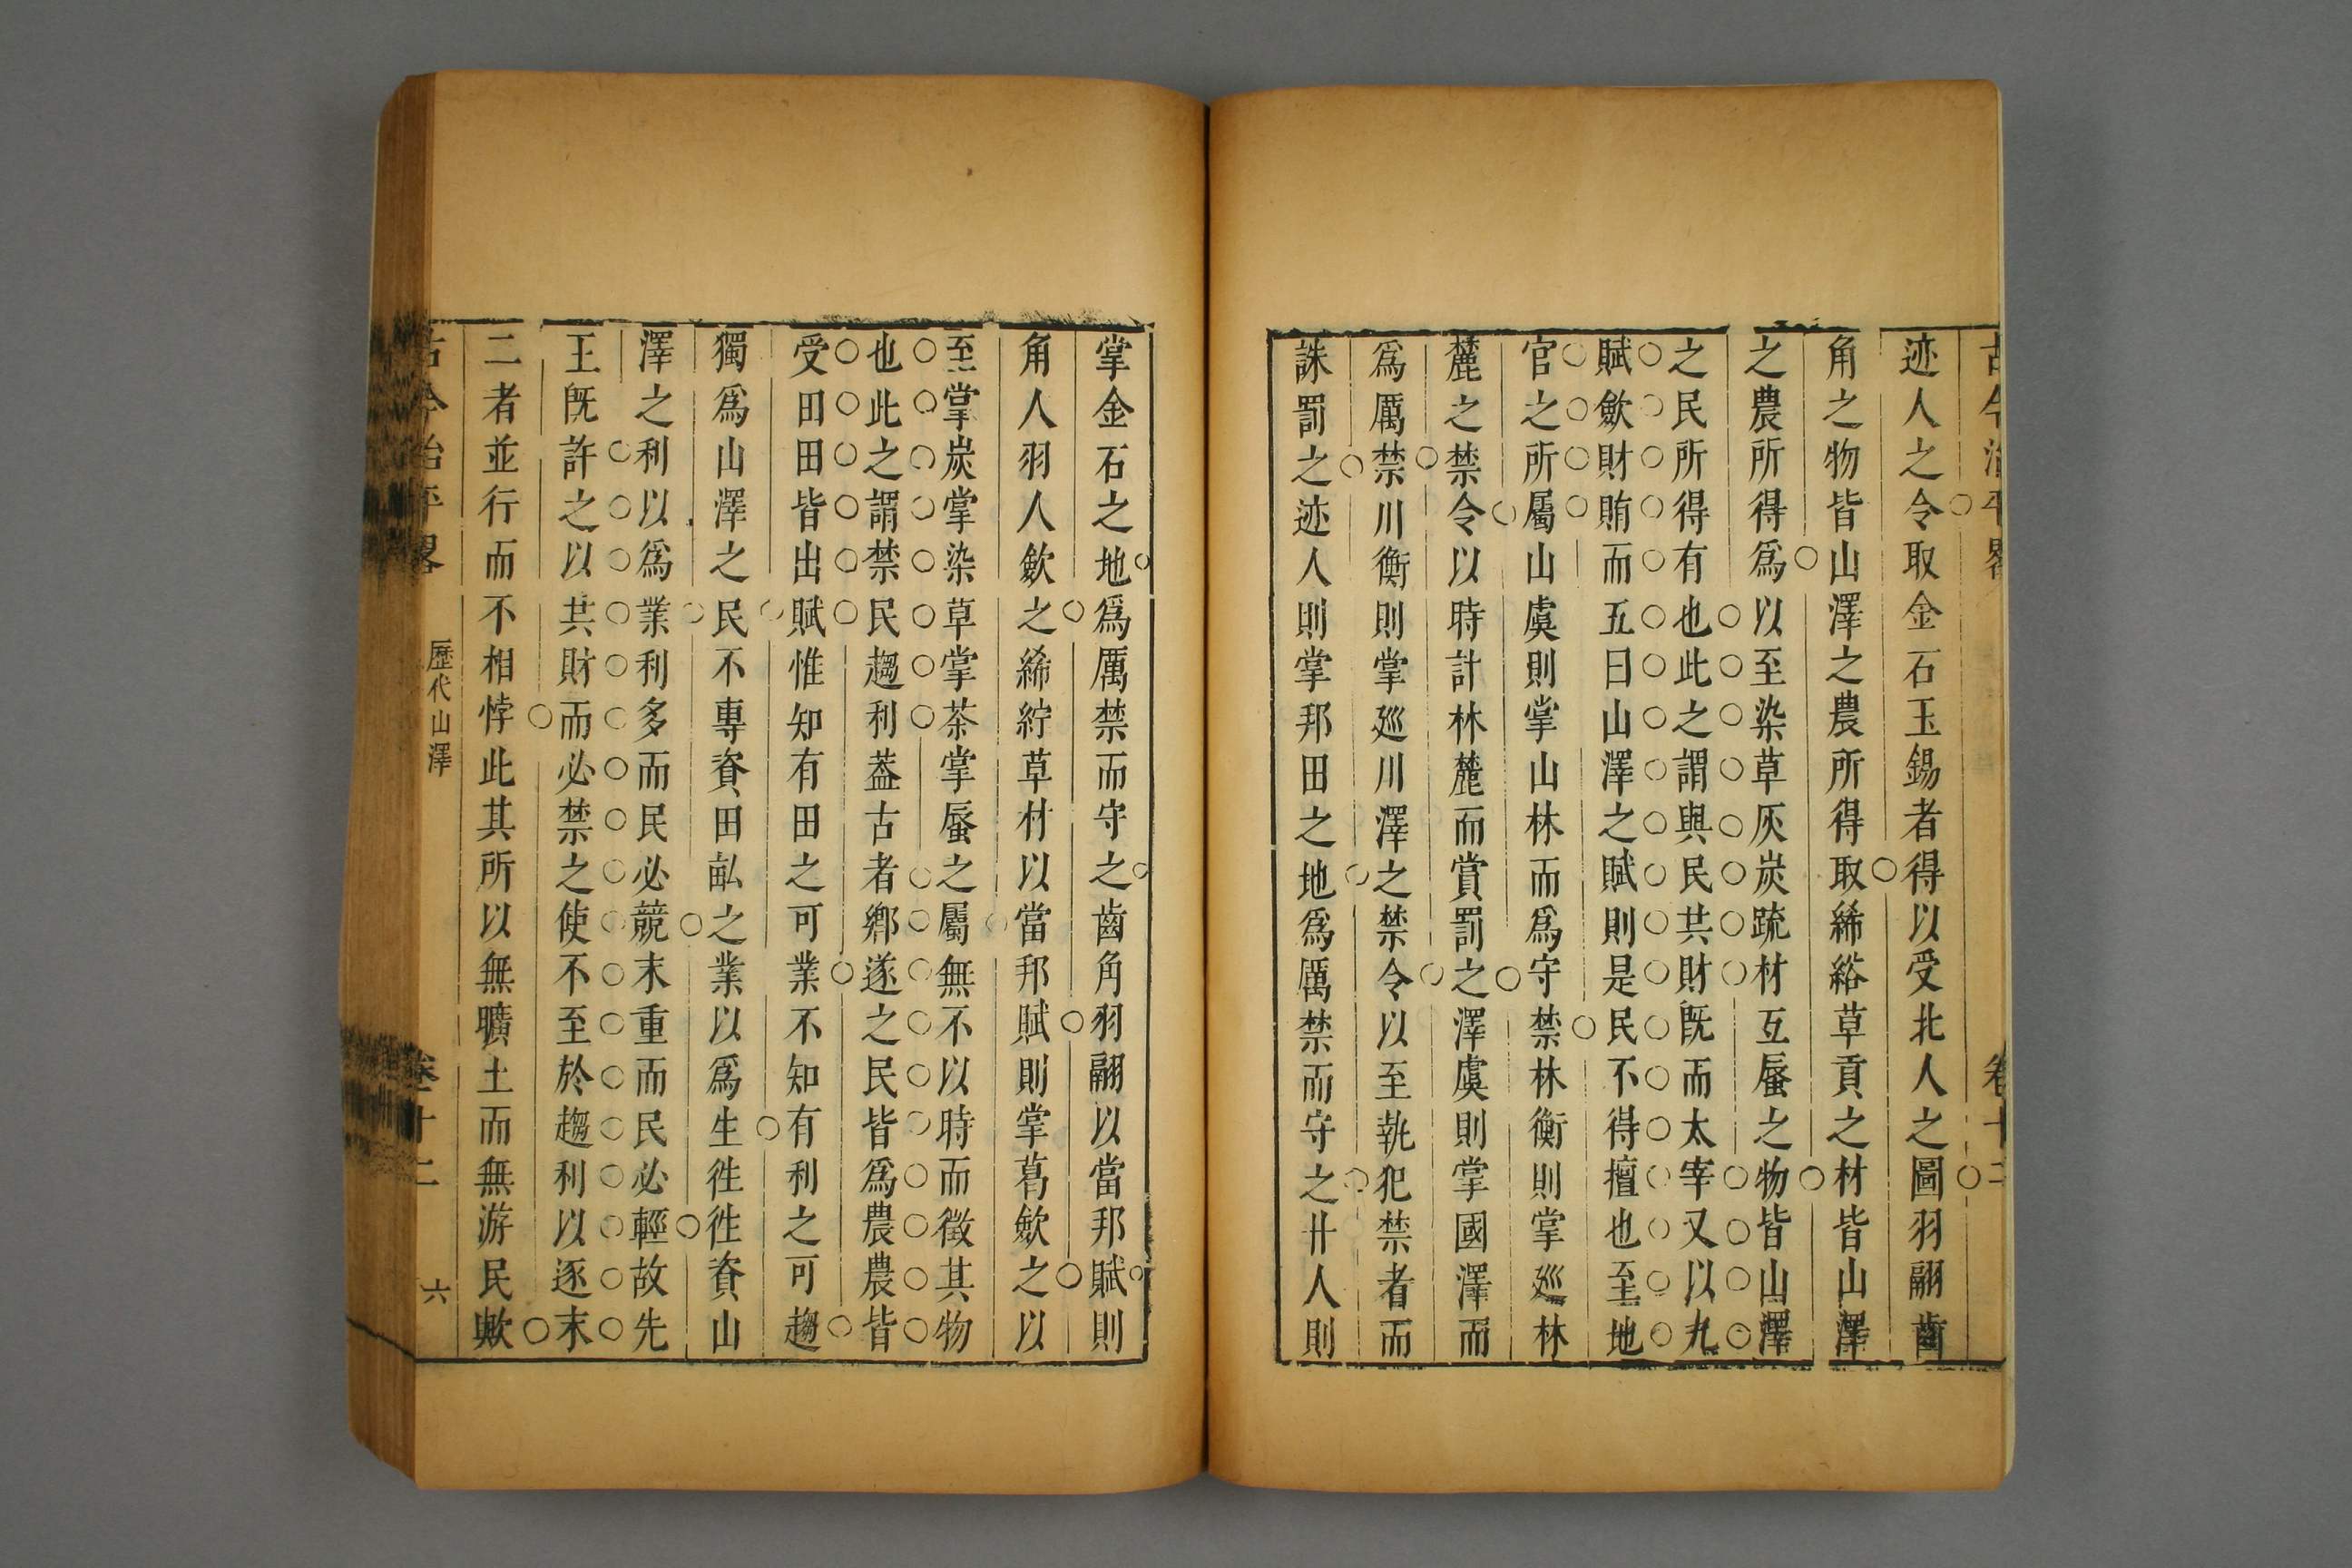 古今治平畧
卷十二
迹人之令取金石玉錫者得以受北人之圖羽翮齒
角之物皆山澤之農所得取絺綌草貢之材皆山澤
之農所得爲以至染草灰炭疏材互蜃之物皆山澤
之民所得有也此之謂與民共財既而太宰又以九
賦歛財賄而五曰山澤之賦則是民不得擅也至地
官之所屬山虞則掌山林而爲守禁林衡則掌廵林
麓之禁令以時計林麓而賞罰之澤虞則掌國澤而
爲厲禁川衡則掌廵川澤之禁令以至執犯禁者而
誅罰之迹人則掌邦田之地爲厲禁而守之卝人則
掌金石之地爲厲禁而守之齒角羽翮以當邦賦則
角人羽人歛之絺紵草材以當邦賦則掌葛歛之以
至掌炭掌染草掌荼掌蜃之屬無不以時而徵其物
也此之謂禁民趨利葢古者鄉遂之民皆爲農農皆
受田田皆出賦惟知有田之可業不知有利之可趨
獨爲山澤之民不專資田畆之業以爲生徃徃資山
澤之利以爲業利多而民必競末重而民必輕故先
王既許之以共財而必禁之使不至於趨利以逐末
二者並行而不相悖此其所以無曠土而無游民歟
古今治平畧
歷代山澤
卷十二
六